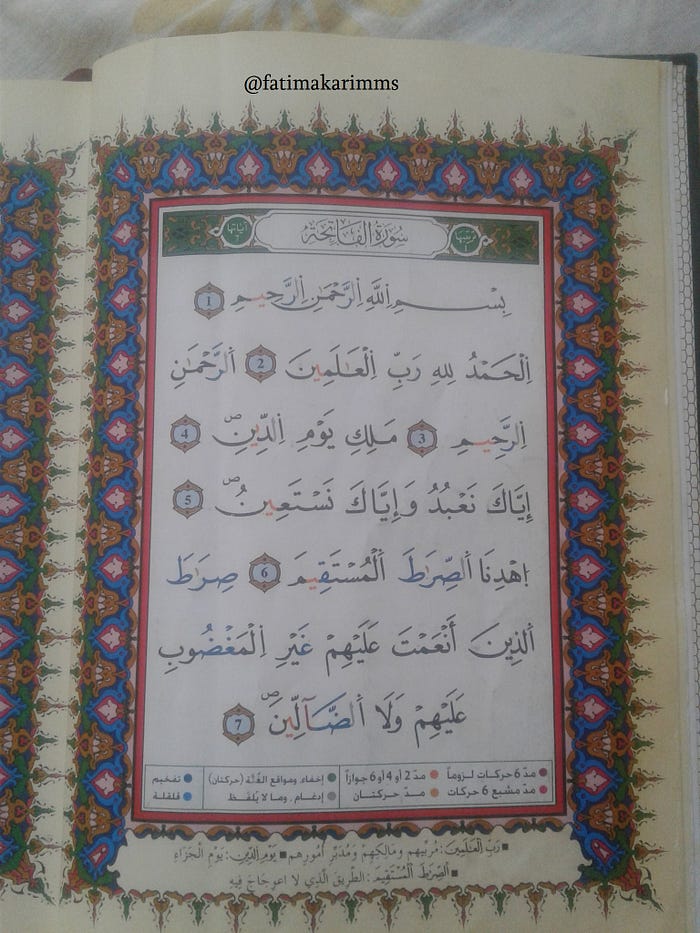 @fatimakarimms
ترتيبها 1 سُورَةُ الفَاتِحَةِ آياتها 7
بِسْمِ اِ۬للَّهِ اِ۬لرَّحْمَٰنِ اِ۬لرَّحِيمِ 1
اِ۬لْحَمْدُ لِلهِ رَبِّ اِ۬لْعَٰلَمِينَ 2 اَ۬لرَّحْمَٰنِ
اِ۬لرَّحِيمِ 3 مَلِكِ يَوْمِ اِ۬لدِّينِ ص 4
إِيَّاكَ نَعْبُدُ وَإِيَّاكَ نَسْتَعِينُ ص 5
اِ۪هْدِنَا اَ۬لصِّرَٰطَ اَ۬لْمُسْتَقِيمَ 6 صِرَٰطَ
اَ۬لذِينَ أَنْعَمْتَ عَلَيْهِمْ غَيْرِ اِ۬لْمَغْضُوبِ
عَلَيْهِمْ وَلَا اَ۬لضَّآلِّينَ ص 7
مدّ 6 حركات لزوماً مدّ 2 أو 4 أو 6 جوازاً إخفاء، ومواقع الغُنَّة (حركتان) تفخيم
مدّ مشبع 6 حركات مدّ حركتــان إدغام، وما لا يُلفَظ قلقلة
رَبِّ الْعَٰلَمِينَ: مُرَبِّيهِم وَمَالِكِهِمْ وَمُدَبِّرِ أُمُورِهِم يَوْمِ الدِّينِ: يَوْمِ الْجَزَاءِ
الصِّرَٰطَ الْمُسْتَقِيمَ: الطَّرِيقَ الَّذِي لا اعوِجَاجَ فِيهِ